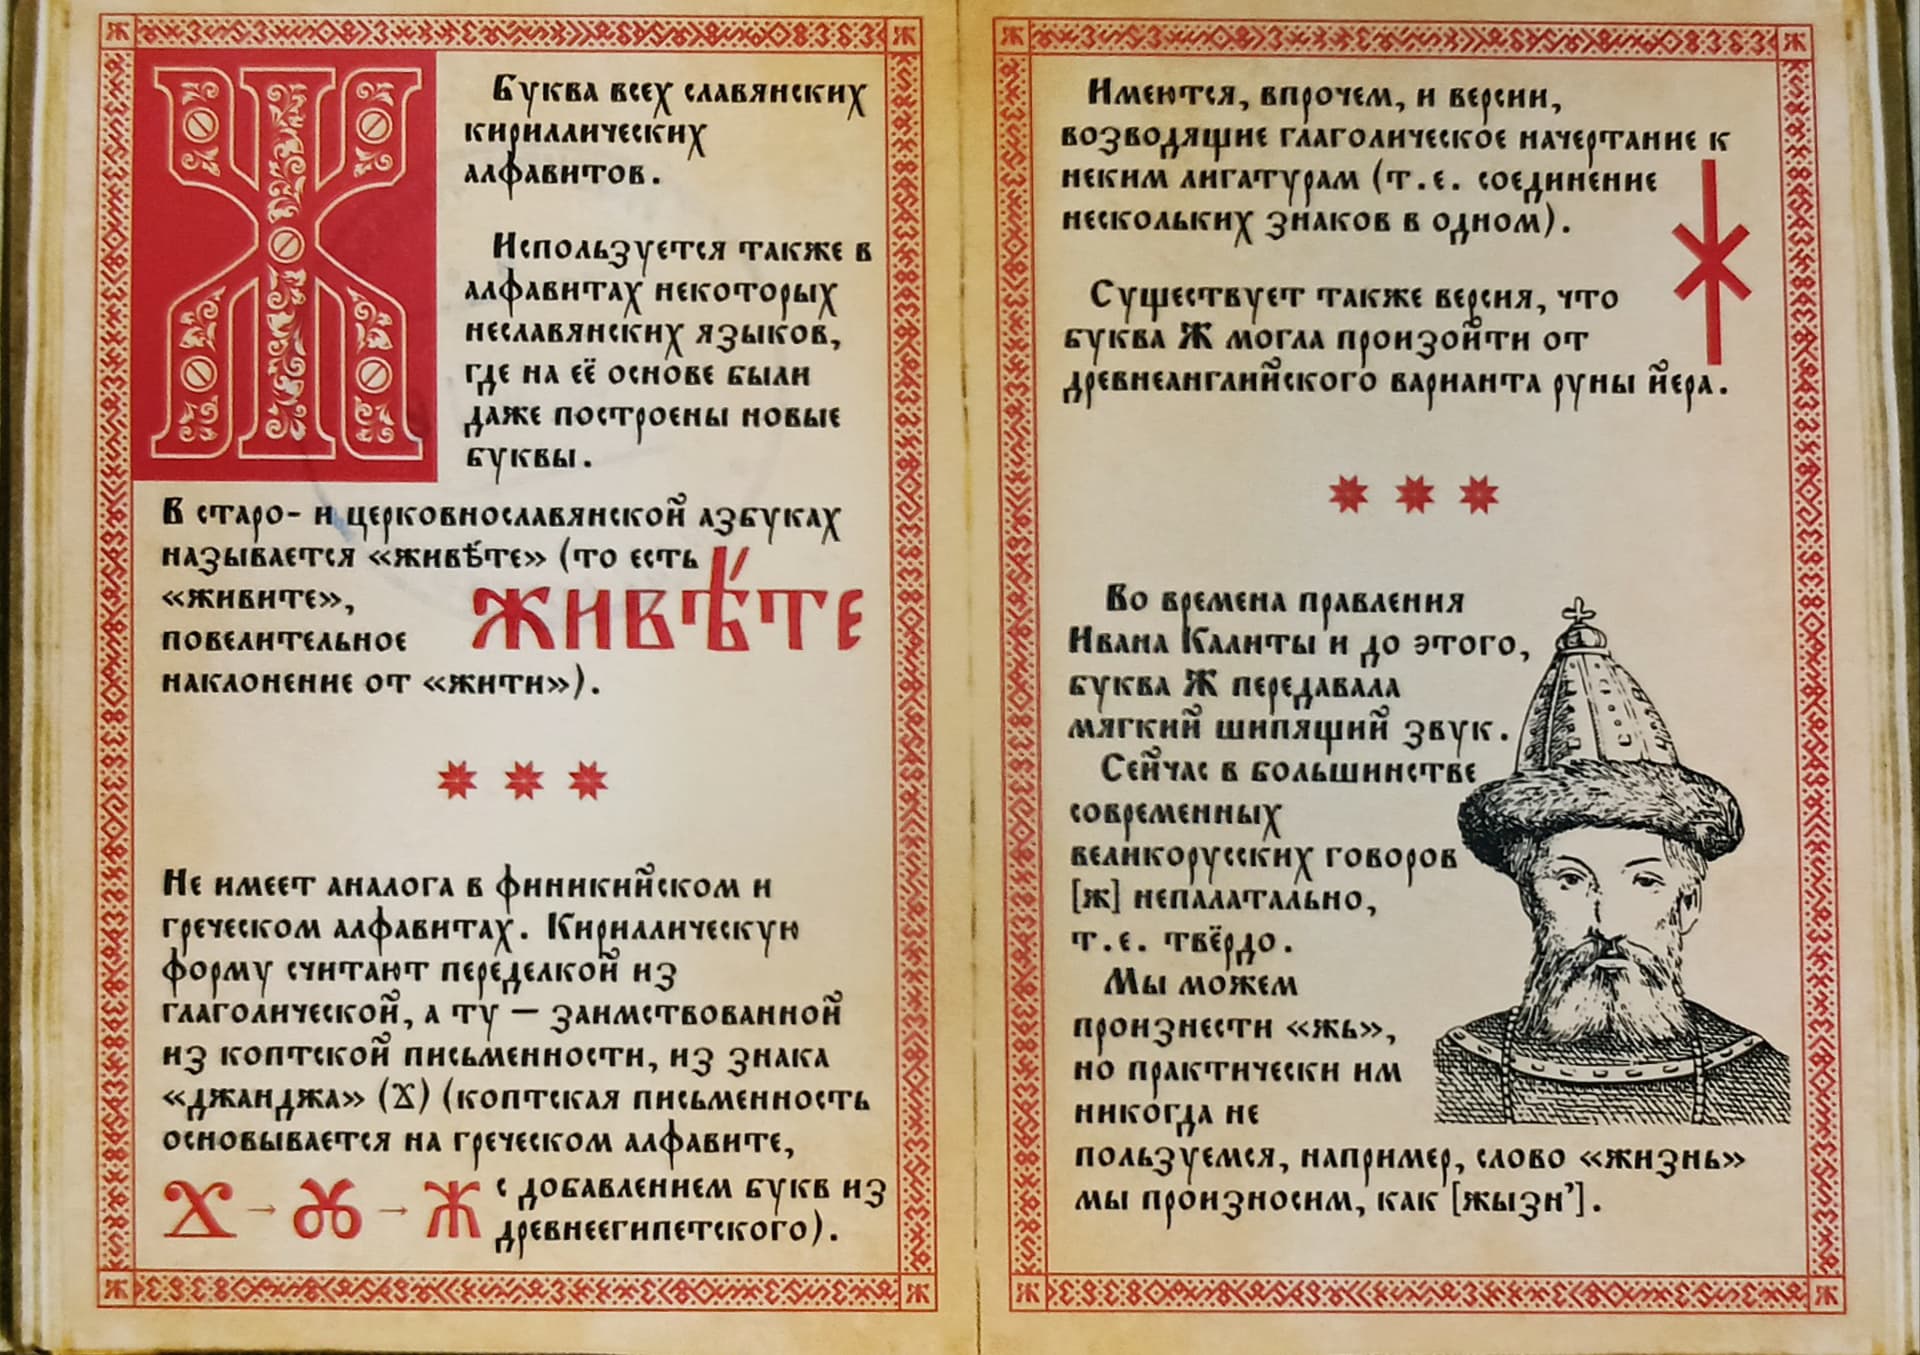 Ж
Буква всех славянских
кириллических
алфавитов.
Используется также в
алфавитах некоторых
неславянских языков,
где на её основе были
даже построены новые
буквы.
В старо- и церковнославянской азбуках
называется «живѣте» (то есть
«живите»,
повелительное
наклонение от «жити»).
живѣте
Не имеет аналога в финикийском и
греческом алфавитах. Кириллическую
форму считают переделкой из
глаголической, а ту — заимствованной
из коптской письменности, из знака
«джанджа» (Ϫ) (коптская письменность
основывается на греческом алфавите,
с добавлением букв из
древнеегипетского).
Ϫ → Ⰶ → Ж
Имеются, впрочем, и версии,
возводящие глаголическое начертание к
неким лигатурам (т.е. соединение
нескольких знаков в одном).
Существует также версия, что
буква Ж могла произойти от
древнеанглийского варианта руны йера.
ᛡ
Во времена правления
Ивана Калиты и до этого,
буква Ж передавала
мягкий шипящий звук.
Сейчас в большинстве
современных
великорусских говоров
[ж] непалатально,
т.е. твёрдо.
Мы можем
произнести «жь»,
но практически им
никогда не
пользуемся, например, слово «жизнь»
мы произносим, как [жызн’].